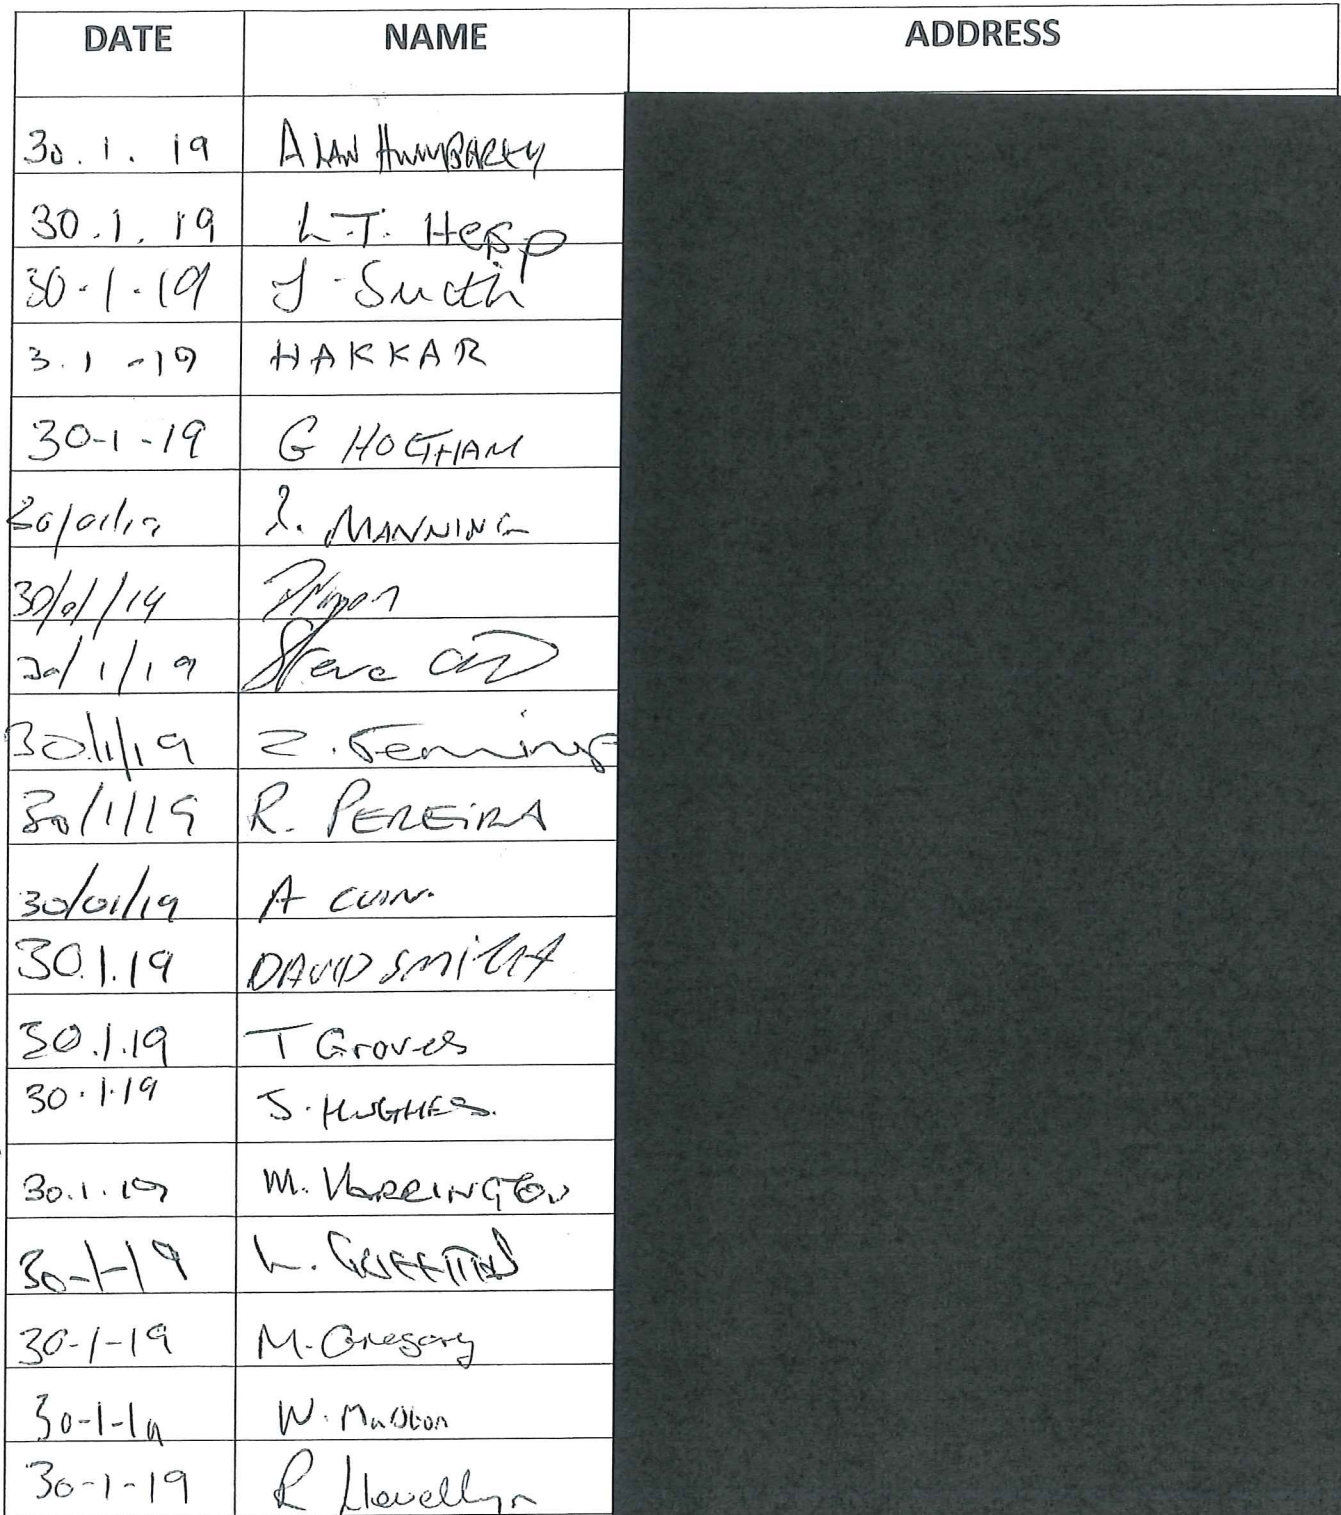 DATE NAME ADDRESS
30.1.19 ALAN HUMBARLY
30.1.19 L.T. Hesp
30-1-19 J. Smith
3.1-19 HAKKAR
30-1-19 G HOLTHAM
30/01/19 MANNING
30/01/19
30/1/19 Steve
30/1/19 Z. Fenning
30/1/19 R. PEREIRA
30/01/19 A
30.1.19 DAVID SMITH
30.1.19 T Groves
30.1.19 J. HUGHES.
30.1.19 M. VARRINGTON
30-1-19 L. GRIFFITHS
30-1-19 M. Gregory
30-1-19 W.
30-1-19 R Llewellyn